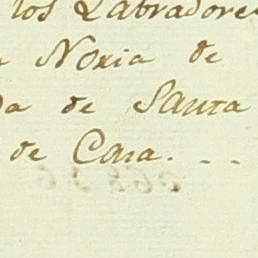 los Labradore
Noria de
da de Santa
de Cara. - -